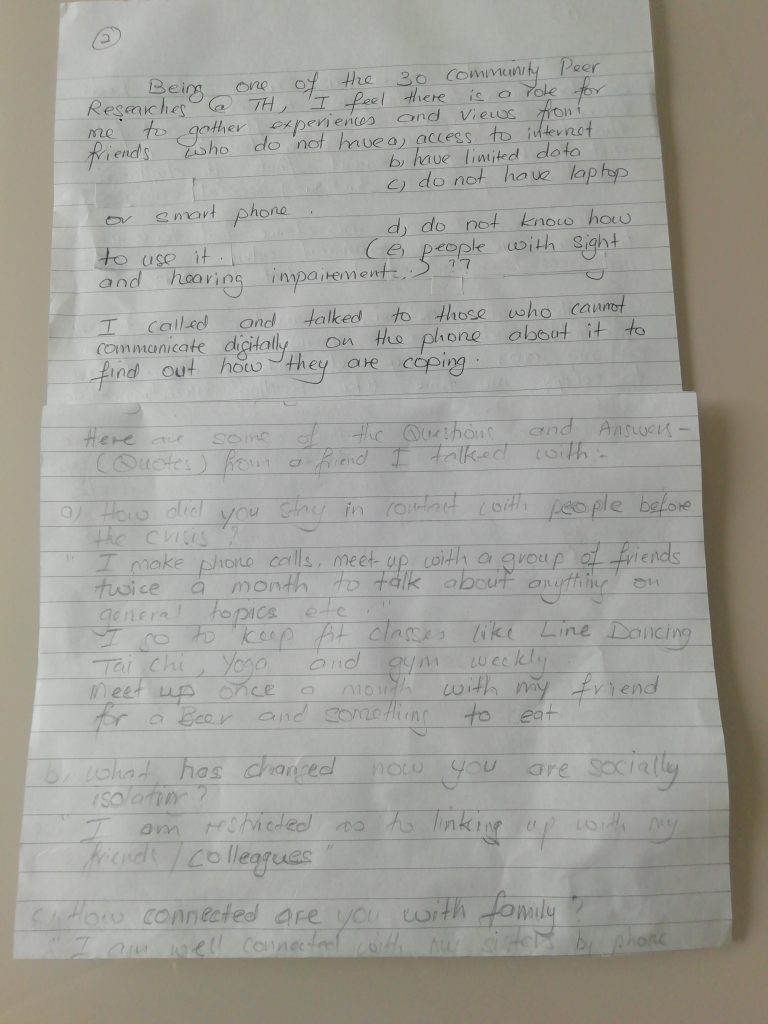 2
Being one of the 30 community Peer
Researches @ TH, I feel there is a role for
me to gather experiences and views from
friends who do not have a, access to internet
b, have limited data
c, do not have laptop
or smart phone.
d, do not know how
to use it.
(e, people with sight
and hearing impairement...) ??
I called and talked to those who cannot
communicate digitally on the phone about it to
find out how they are coping.
Here are some of the Questions and Answers -
(Quotes) from a friend I talked with:-
a) How did you stay in contact with people before
the crisis?
" I make phone calls, meet-up with a group of friends
twice a month to talk about anything on
general topics etc."
I go to keep fit classes like Line Dancing
Tai chi, Yoga and gym weekly.
Meet up once a month with my friend
for a Beer and something to eat
b, What has changed now you are socially
isolating?
" I am restricted as to linking up with my
friends / colleagues"
c, How connected are you with family?
" I am well connected with my sisters by phone